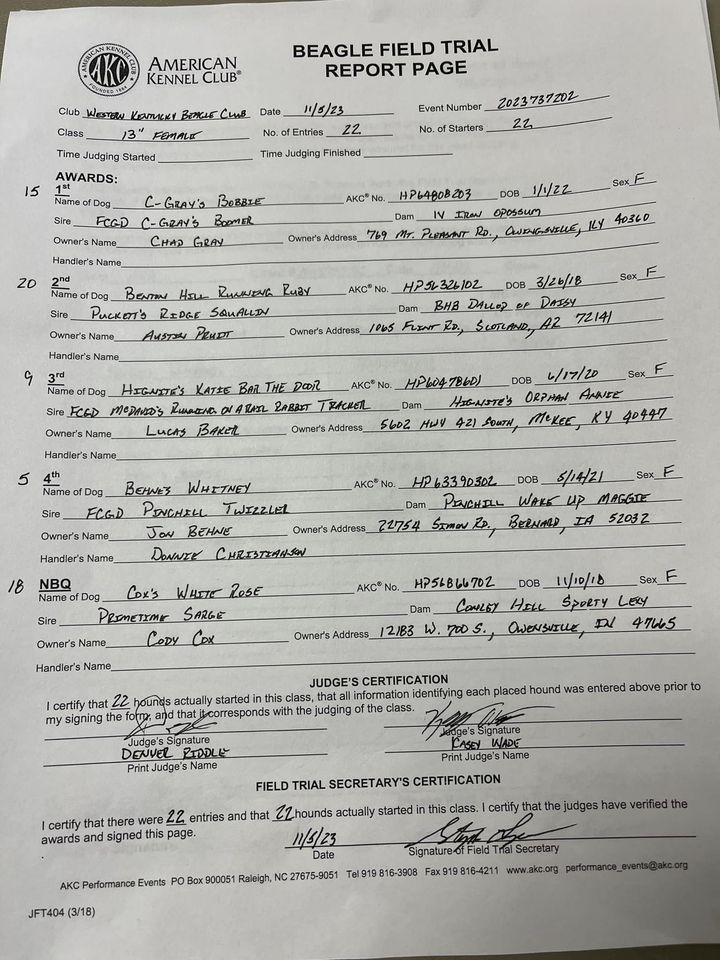 AMERICAN KENNEL CLUB
AKC
FOUNDED 1884
AMERICAN KENNEL CLUB®
BEAGLE FIELD TRIAL
REPORT PAGE
Club WESTERN KENTUCKY BEAGLE CLUB Date 11/5/23 Event Number 2023737202
Class 13" FEMALE No. of Entries 22 No. of Starters 22
Time Judging Started Time Judging Finished
AWARDS:
15 1st
Name of Dog C-GRAY'S BOBBIE AKC® No. HP64808203 DOB 1/1/22 Sex F
Sire FCGD C-GRAY'S BOOMER Dam IV IRON OPOSSUM
Owner's Name CHAD GRAY Owner's Address 769 MT. PLEASANT RD., OWINGSVILLE, KY 40360
Handler's Name
20 2nd
Name of Dog BENTON HILL RUNNING RUBY AKC® No. HP56326102 DOB 3/26/18 Sex F
Sire PUCKETT'S RIDGE SQUALLIN Dam BHB DALLOP OF DAISY
Owner's Name AUSTIN PRUITT Owner's Address 1065 FLINT RD., SCOTLAND, AR 72141
Handler's Name
9 3rd
Name of Dog HIGNITE'S KATIE BAR THE DOOR AKC® No. HP60478601 DOB 6/17/20 Sex F
Sire FCGD MCDAVID'S RUNNING ON A RAIL RABBIT TRACKER Dam HIGNITE'S ORPHAN ANNIE
Owner's Name LUCAS BAKER Owner's Address 5602 HWY 421 SOUTH, MCKEE, KY 40447
Handler's Name
5 4th
Name of Dog BEHNE'S WHITNEY AKC® No. HP63390302 DOB 5/14/21 Sex F
Sire FCGD PINCHILL TWIZZLER Dam PINCHILL WAKE UP MAGGIE
Owner's Name JON BEHNE Owner's Address 22754 SIMON RD., BERNARD, IA 52032
Handler's Name DONNIE CHRISTIANSON
18 NBQ
Name of Dog COX'S WHITE ROSE AKC® No. HP56866702 DOB 11/10/18 Sex F
Sire PRIMETIME SARGE Dam CONLEY HILL SPORTY LEXY
Owner's Name CODY COX Owner's Address 12183 W. 700 S., OWENSVILLE, IN 47665
Handler's Name
JUDGE'S CERTIFICATION
I certify that 22 hounds actually started in this class, that all information identifying each placed hound was entered above prior to
my signing the form, and that it corresponds with the judging of the class.
Judge's Signature Judge's Signature
DENVER RIDDLE KASEY WADE
Print Judge's Name Print Judge's Name
FIELD TRIAL SECRETARY'S CERTIFICATION
I certify that there were 22 entries and that 22 hounds actually started in this class. I certify that the judges have verified the
awards and signed this page.
11/5/23
Date Signature of Field Trial Secretary
AKC Performance Events PO Box 900051 Raleigh, NC 27675-9051 Tel 919 816-3908 Fax 919 816-4211 www.akc.org performance_events@akc.org
JFT404 (3/18)